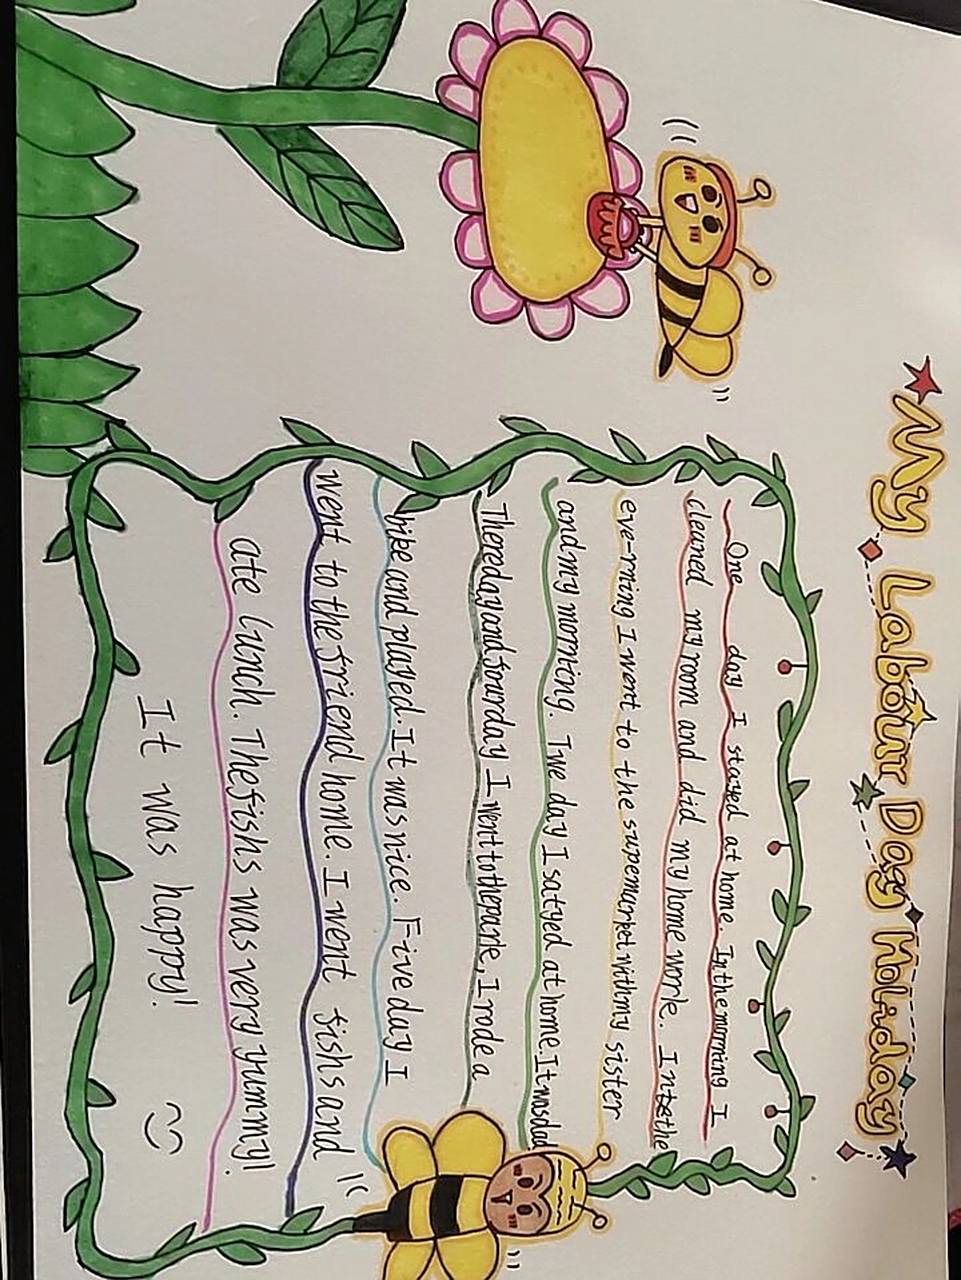 My Labour Day Holiday
One day I stayed at home. In the morning I
cleaned my room and did my homework. In the
eve-rning I went to the supemarket with my sister
and my mornting. Twe day I satyed at home It was dad
There day and fourday I went to the park, I rode a
bike and played. It was nice. Five day I
went to the friend home. I went fishs and
ate lunch. The fishs was very yummy!
It was happy!